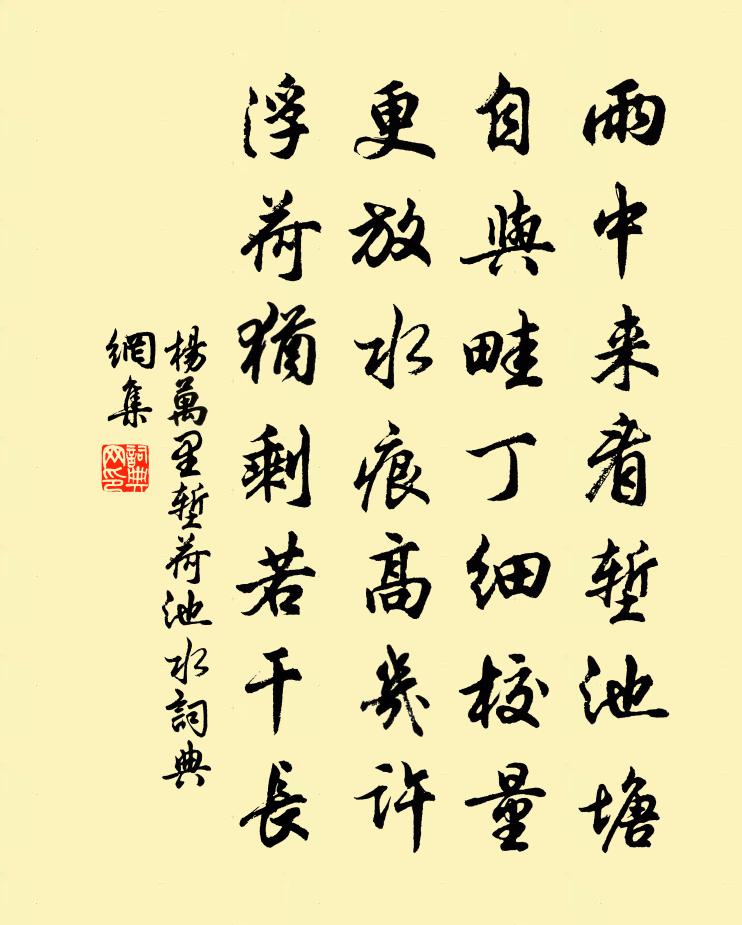 雨中来看塹池塘
自與畦丁細校量
更放水痕高幾許
浮荷猶剩若干長
楊萬里塹荷池水詞典
網集
詞典
网印